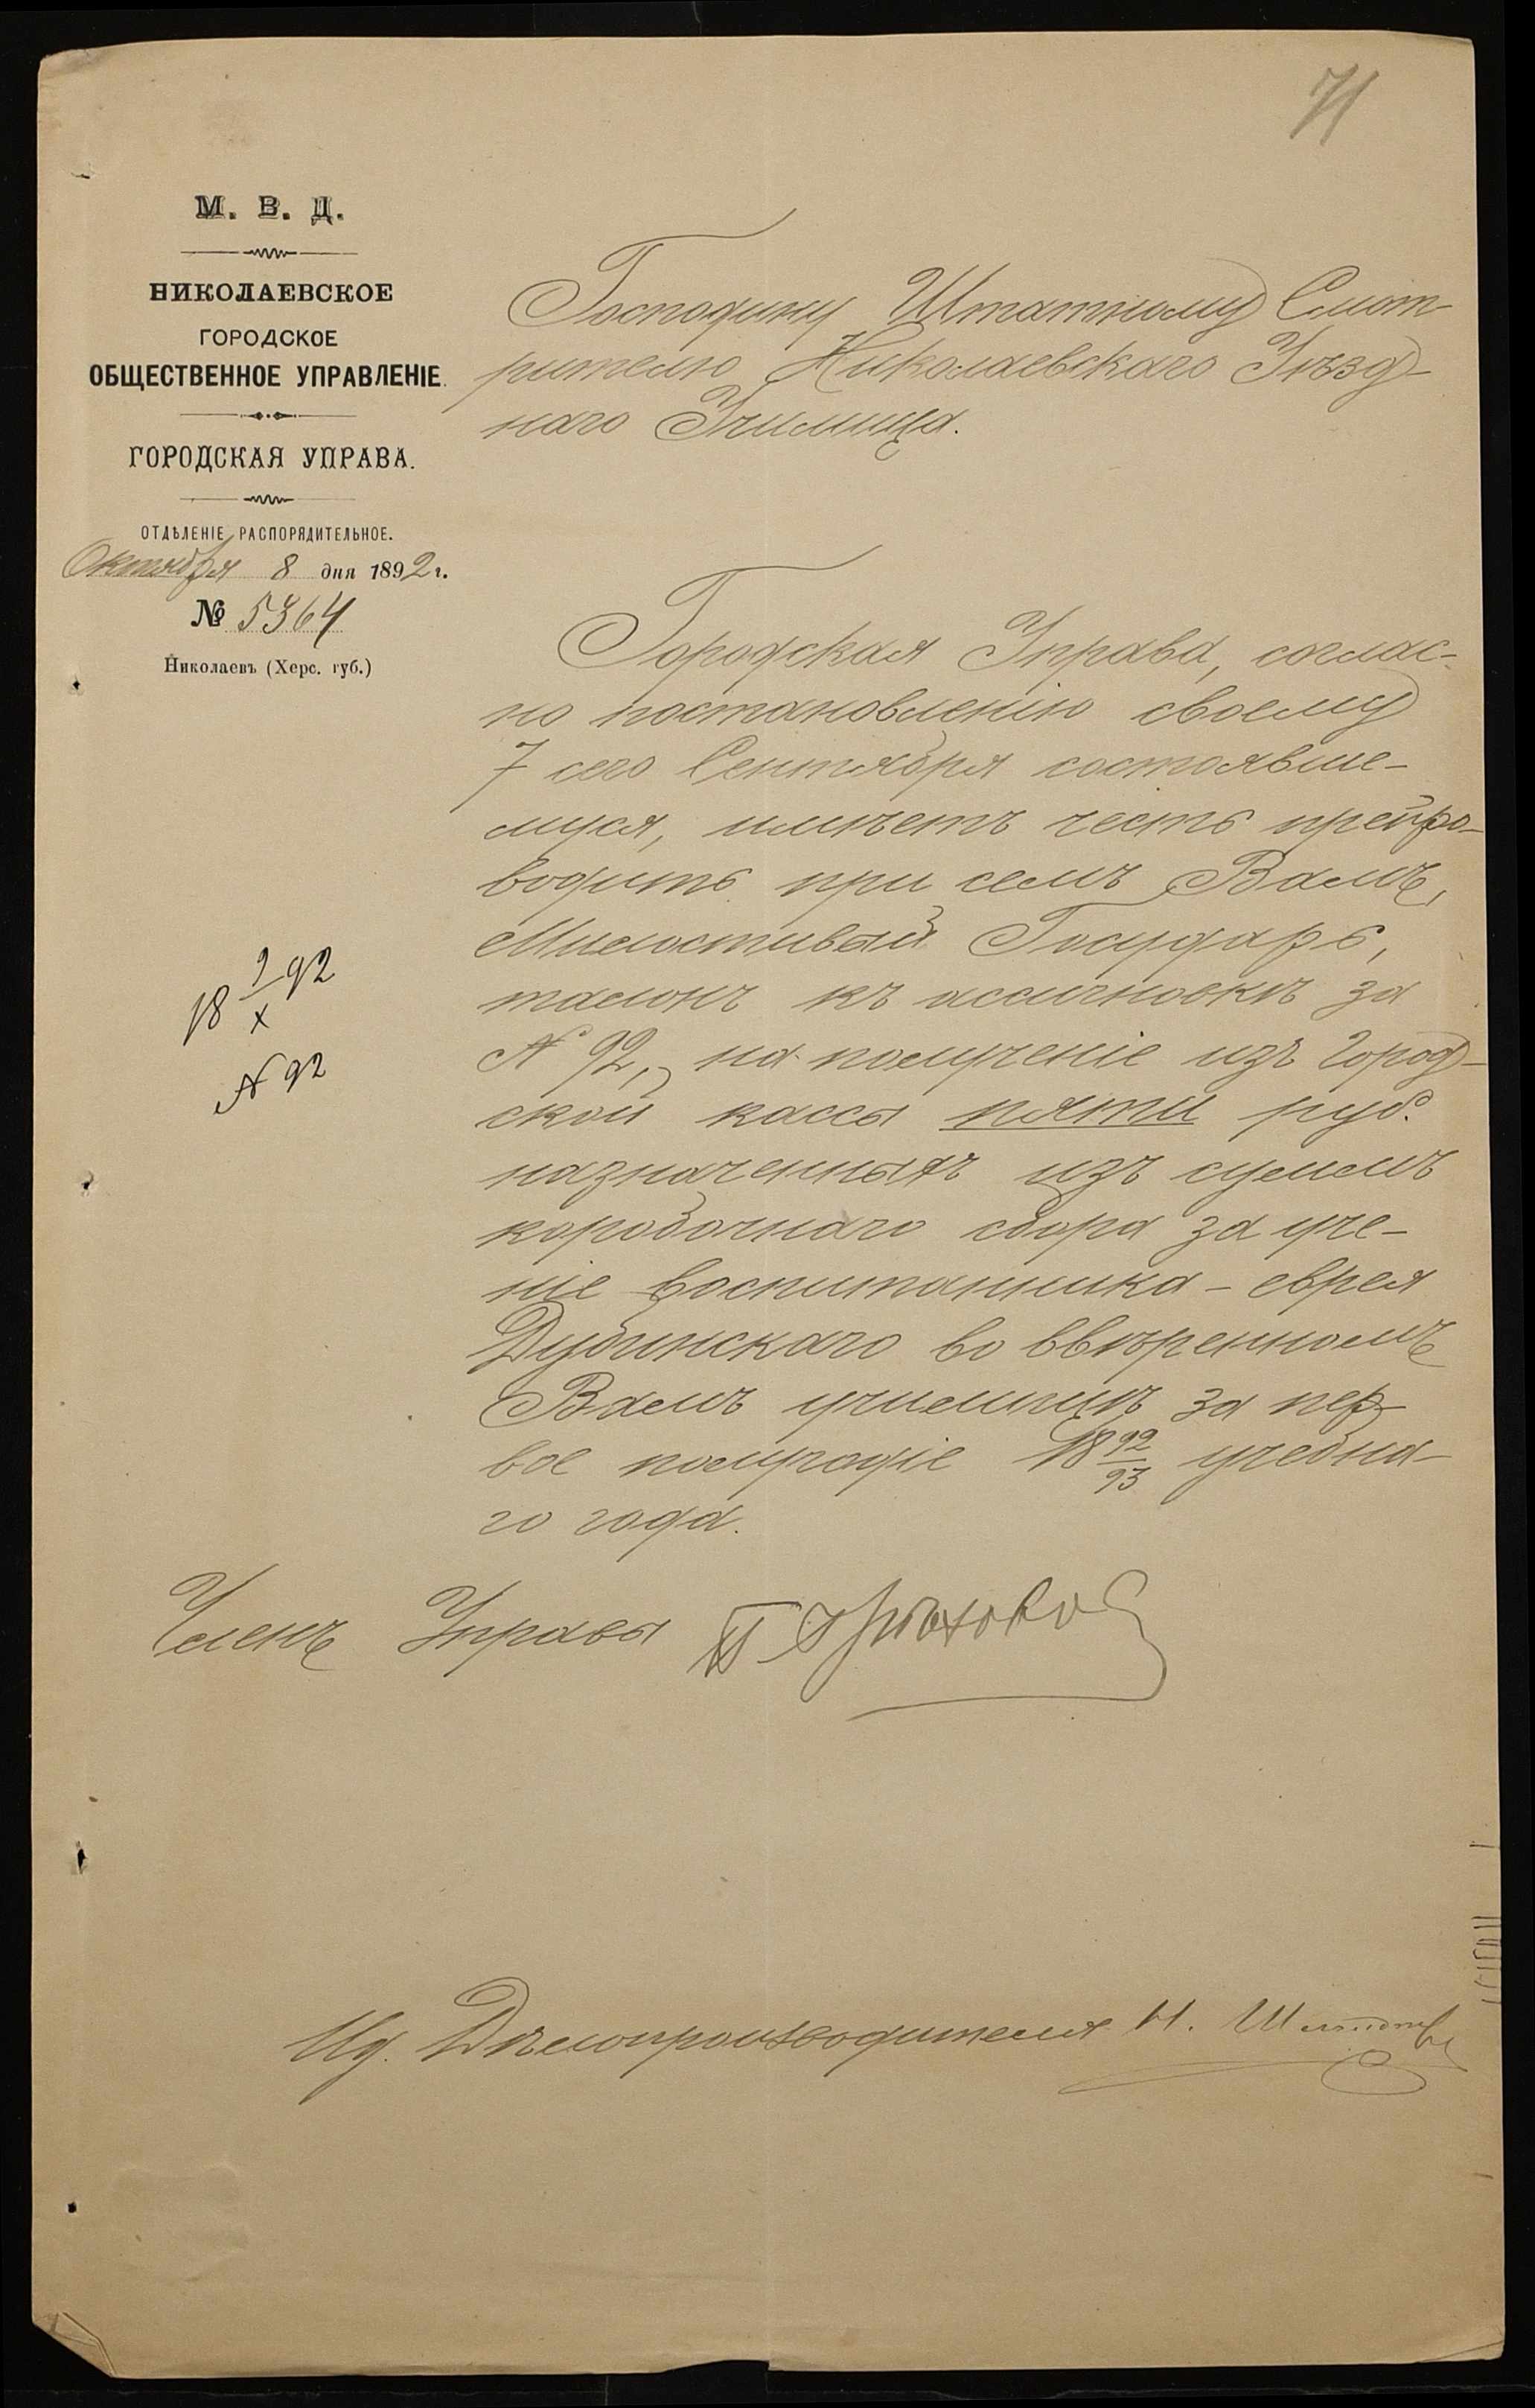 71
М. В. Д.
НИКОЛАЕВСКОЕ
ГОРОДСКОЕ
ОБЩЕСТВЕННОЕ УПРАВЛЕНІЕ.
ГОРОДСКАЯ УПРАВА.
ОТДѢЛЕНІЕ РАСПОРЯДИТЕЛЬНОЕ.
Октября 8 дня 1892 г.
№ 5364
Николаевъ (Херс. губ.)
Господину Штатному Смот-
рителю Николаевскаго Уѣзд-
наго Училища.
Городская Управа, соглас-
но постановленію своему
7 сего Сентября состоявше-
муся, имѣетъ честь препро-
водить при семъ Вамъ,
Милостивый Государь,
талонъ къ ассигновкѣ за
№ 92, на полученіе изъ Город-
ской кассы пяти руб.
назначенныхъ изъ суммъ
коробочнаго сбора за уче-
ніе воспитанника - еврея
Дубинскаго во ввѣренномъ
Вамъ училищѣ за пер-
вое полугодіе 18 92/93 учебна-
го года.
18 9/X 92
№ 92
Членъ Управы
Ид. Дѣлопроизводителя Н.